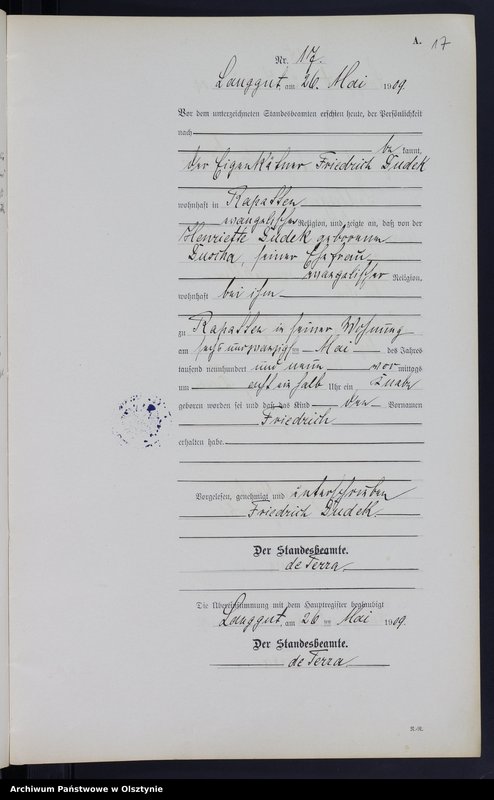 A.
17
Nr. 17.
Langgut, am 26. Mai 1909
Vor dem unterzeichneten Standesbeamten erschien heute, der Persönlichkeit
nach
be kannt,
der Eigenkätner Friedrich Dudek
wohnhaft in Rapatten
evangelischer Religion, und zeigte an, daß von der
Henriette Dudek geborenen
seiner Ehefrau
evangelischer Religion,
wohnhaft bei ihm
zu Rapatten in seiner Wohnung
am sechsundzwanzigsten Mai des Jahres
tausend neunhundert und neun vor mittags
um ein halb Uhr ein Knabe
geboren worden sei und daß das Kind den Vornamen
Friedrich
erhalten habe.
Vorgelesen, genehmigt und unterschrieben
Friedrich Dudek
Der Standesbeamte.
de Terra.
Die Übereinstimmung mit dem Hauptregister beglaubigt
Langgut, am 26 ten Mai 1909.
Der Standesbeamte.
de Terra.
Archiwum Państwowe w Olsztynie